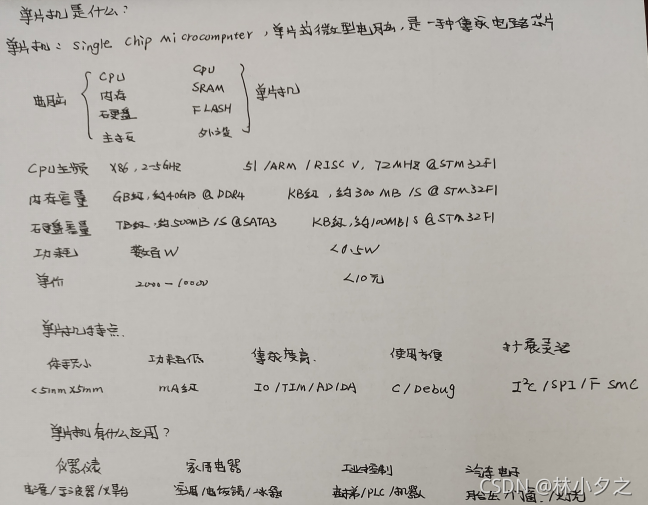 单片机是什么?
单片机: Single Chip Microcomputer, 单片的微型电脑, 是一种集成电路芯片
电脑 CPU CPU 单片机
内存 SRAM
硬盘 FLASH
主板 外设
CPU主频 X86, 2-5GHz 51/ARM/RISC V, 72MHz @STM32F1
内存容量 GB级, 约40GB @DDR4 KB级, 约300MB/S @STM32F1
硬盘容量 TB级, 约500MB/S @SATA3 KB级, 约100MB/S @STM32F1
功耗 数百W <0.5W
单价 2000-10000 <10元
单片机特点.
体积小 功耗低 集成度高. 使用方便 扩展灵活
<5mm×5mm mA级 IO/TIM/AD/DA C/Debug I²C/SPI/FSMC
单片机有什么应用?
仪器仪表 家用电器 工业控制 汽车电子
电源/示波器/ 空调/电饭锅/ /PLC/机器人 /门窗/
CSDN @林小夕之